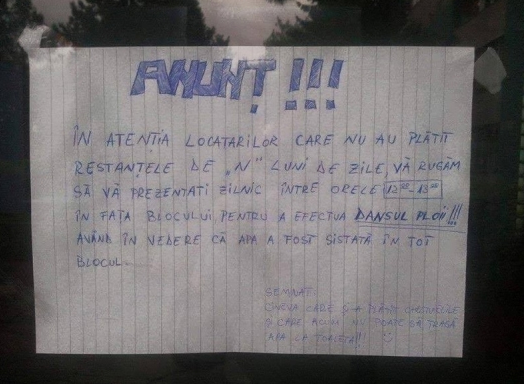 ANUNȚ !!!
ÎN ATENȚIA LOCATARILOR CARE NU AU PLĂTIT
RESTANȚELE DE „N" LUNI DE ZILE, VĂ RUGĂM
SĂ VĂ PREZENTAȚI ZILNIC ÎNTRE ORELE 12⁰⁰-13⁰⁰
ÎN FAȚA BLOCULUI PENTRU A EFECTUA DANSUL PLOII!!!
AVÂND ÎN VEDERE CĂ APA A FOST SISTATĂ ÎN TOT
BLOCUL.
SEMNAT:
CURVA CARE ȘI-A PLĂTIT CHELTUIELILE
ȘI CARE ACUM NU POATE SĂ TRAGĂ
APA LA TOALETĂ!!! :)